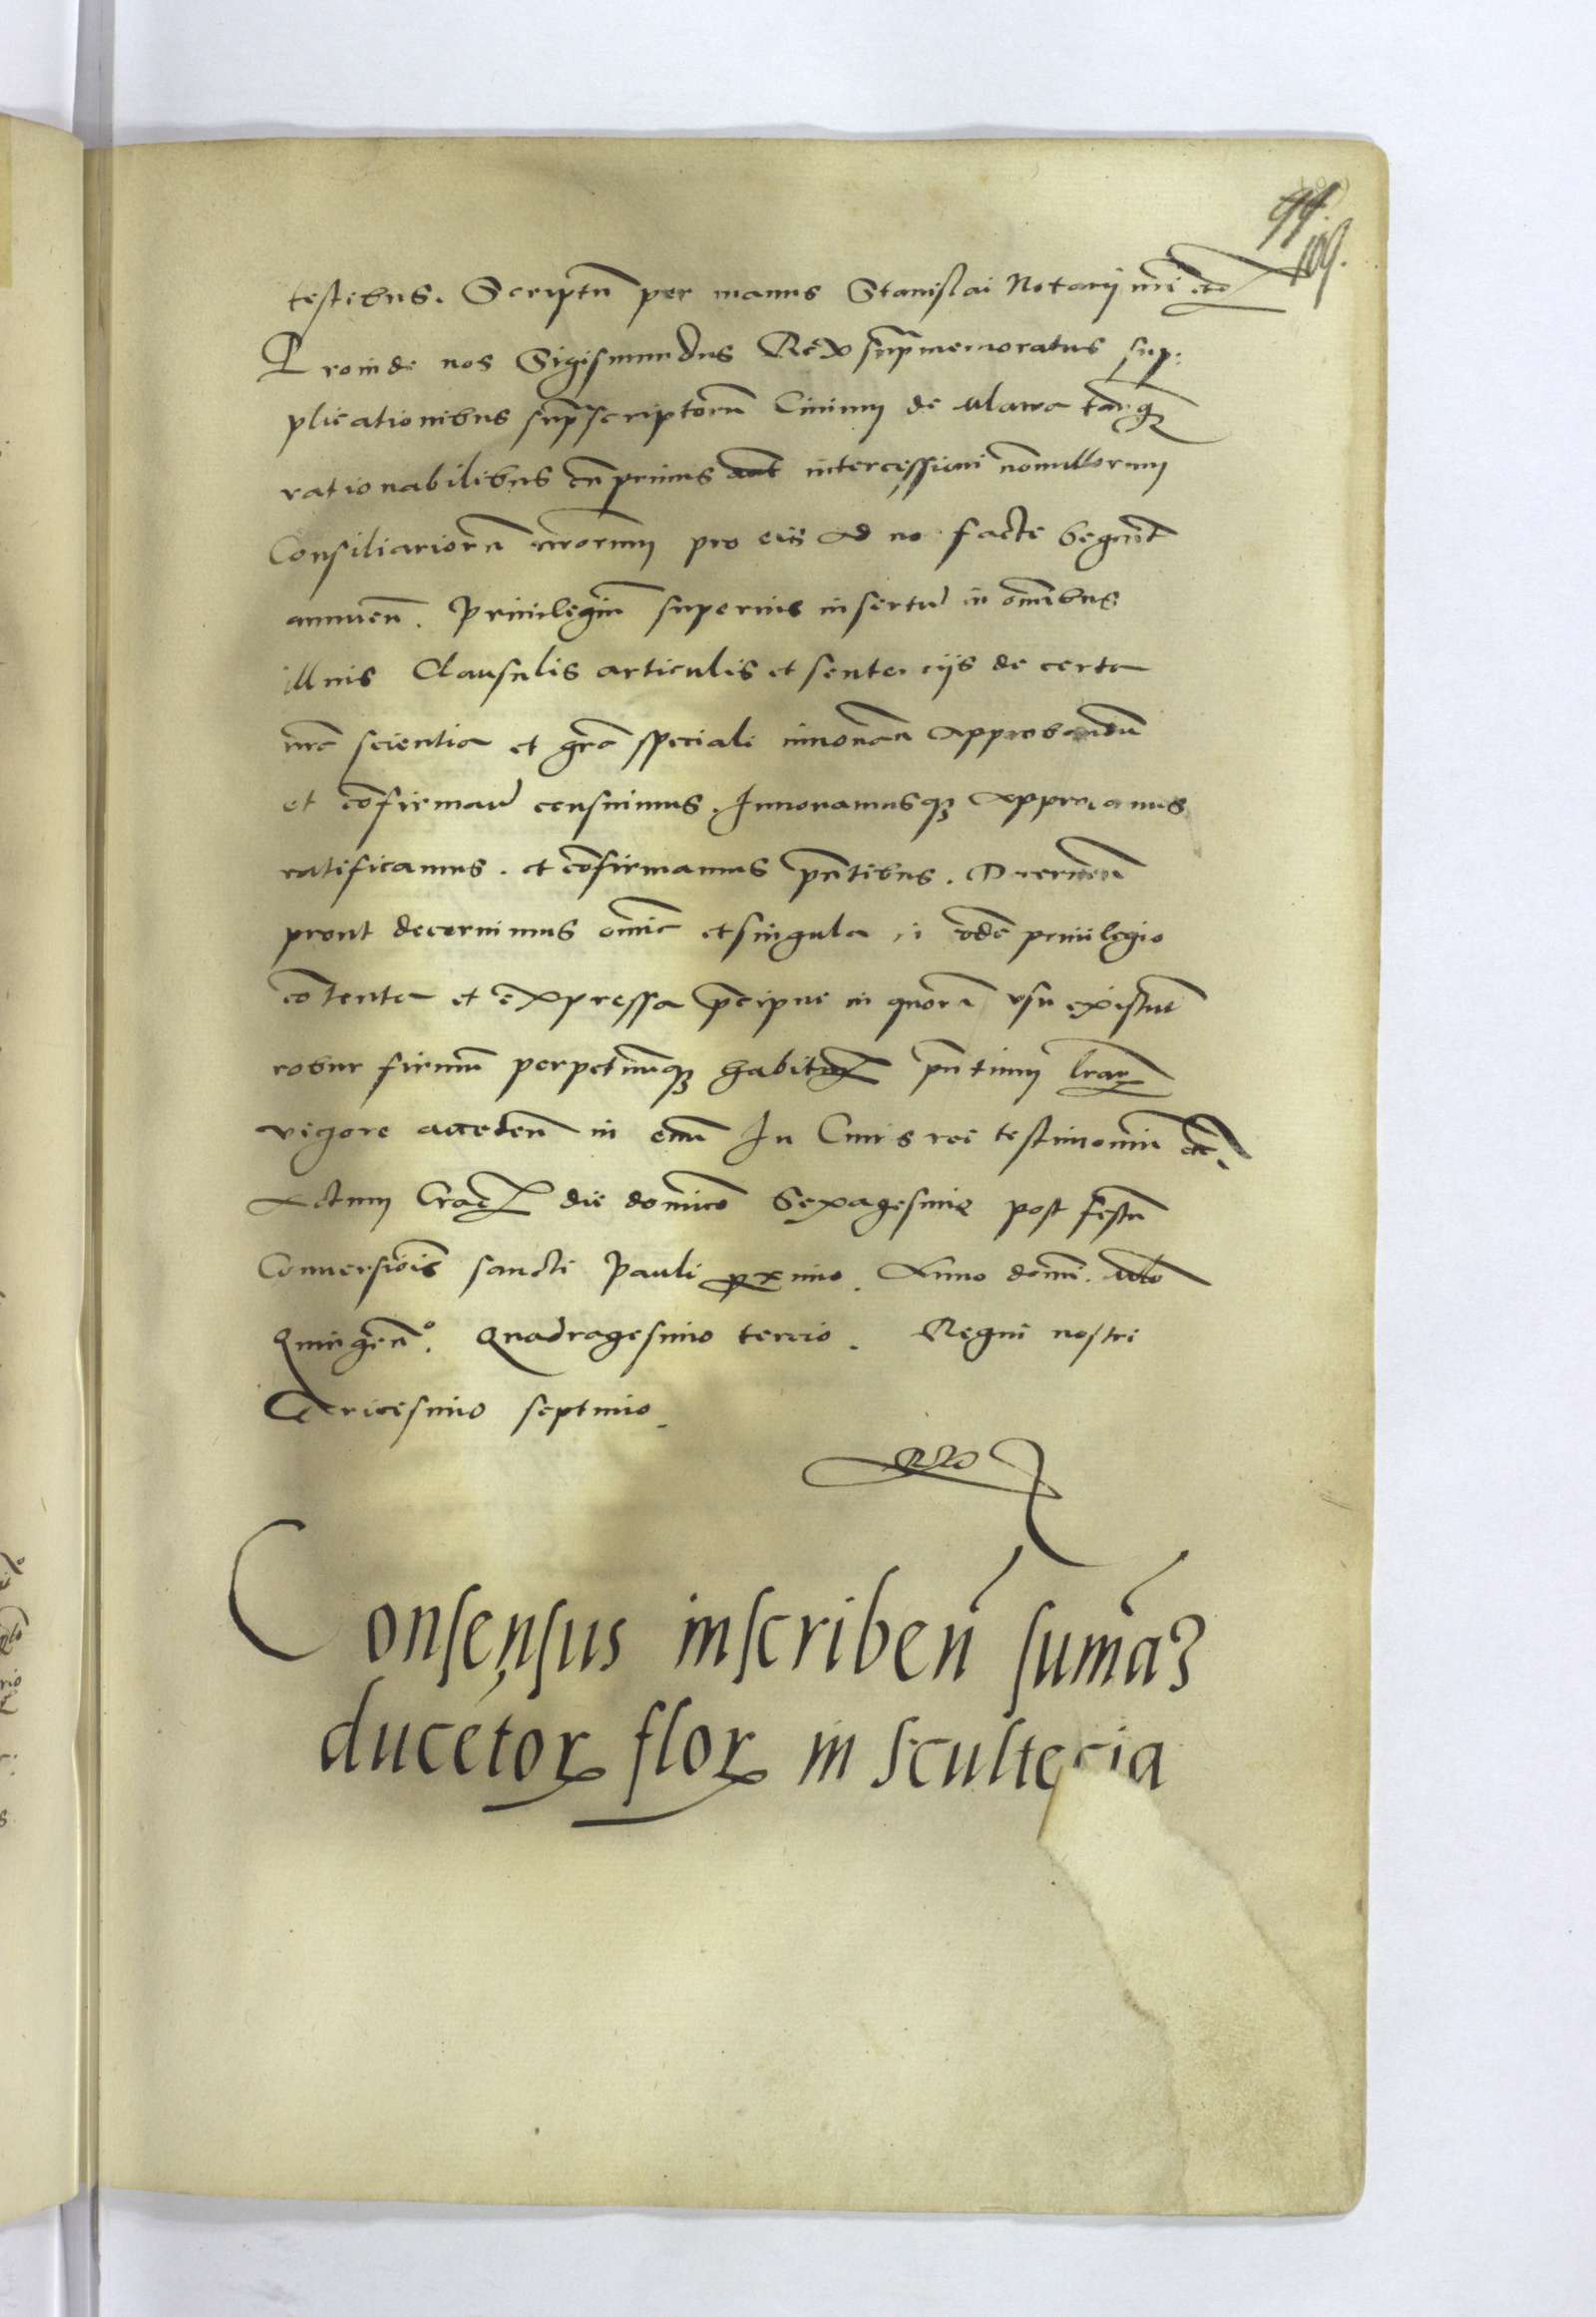 99.
109.
testibus. Scriptu͂ per manus Stanislai Notarij nri etc
Proinde nos Sigismundus Rex supramemoratus sup:
plicationibus suprascriptoru͂ Ciuium de Mlawa tanq̃
rationabilibus intercessioni nonnullorum
Consiliarioru͂ nrorum pro eis ad no facte
annuen͂. Priuilegiu͂ superius insertu͂ in om̃ibus
illius Clausulis articulis et senteciis de certa
nr̃a scientia et gr̃a speciali innouan͂ approbandu͂
et co͂firmand͂ censuimus. Innouamusq3 approbamus
ratificamus. et co͂firmamus pn͂tibus. Decernen͂
prout decernimus om̃ia et singula i͂ eode͂ priuilegio
co͂tenta et expressa p͂cipue in quoru͂ vsu existunt
robur firmu͂ perpetuu͂q3 habitur͂ pn͂tium lrar͂
vigore acceden͂ in euu͂ In Cuius rei testimoniu͂ etc.
Actum Crac͂ die dominico Sexagesime post festu͂
Conuersio͂is sancti Pauli proximo. Anno domi͂. Mlo͂
Quingen͂o. Quadragesimo tercio. Regni nostri
Tricesimo septimo
Consensus inscriben͂ suma͂3
ducetor͂ flor͂ in scultecia